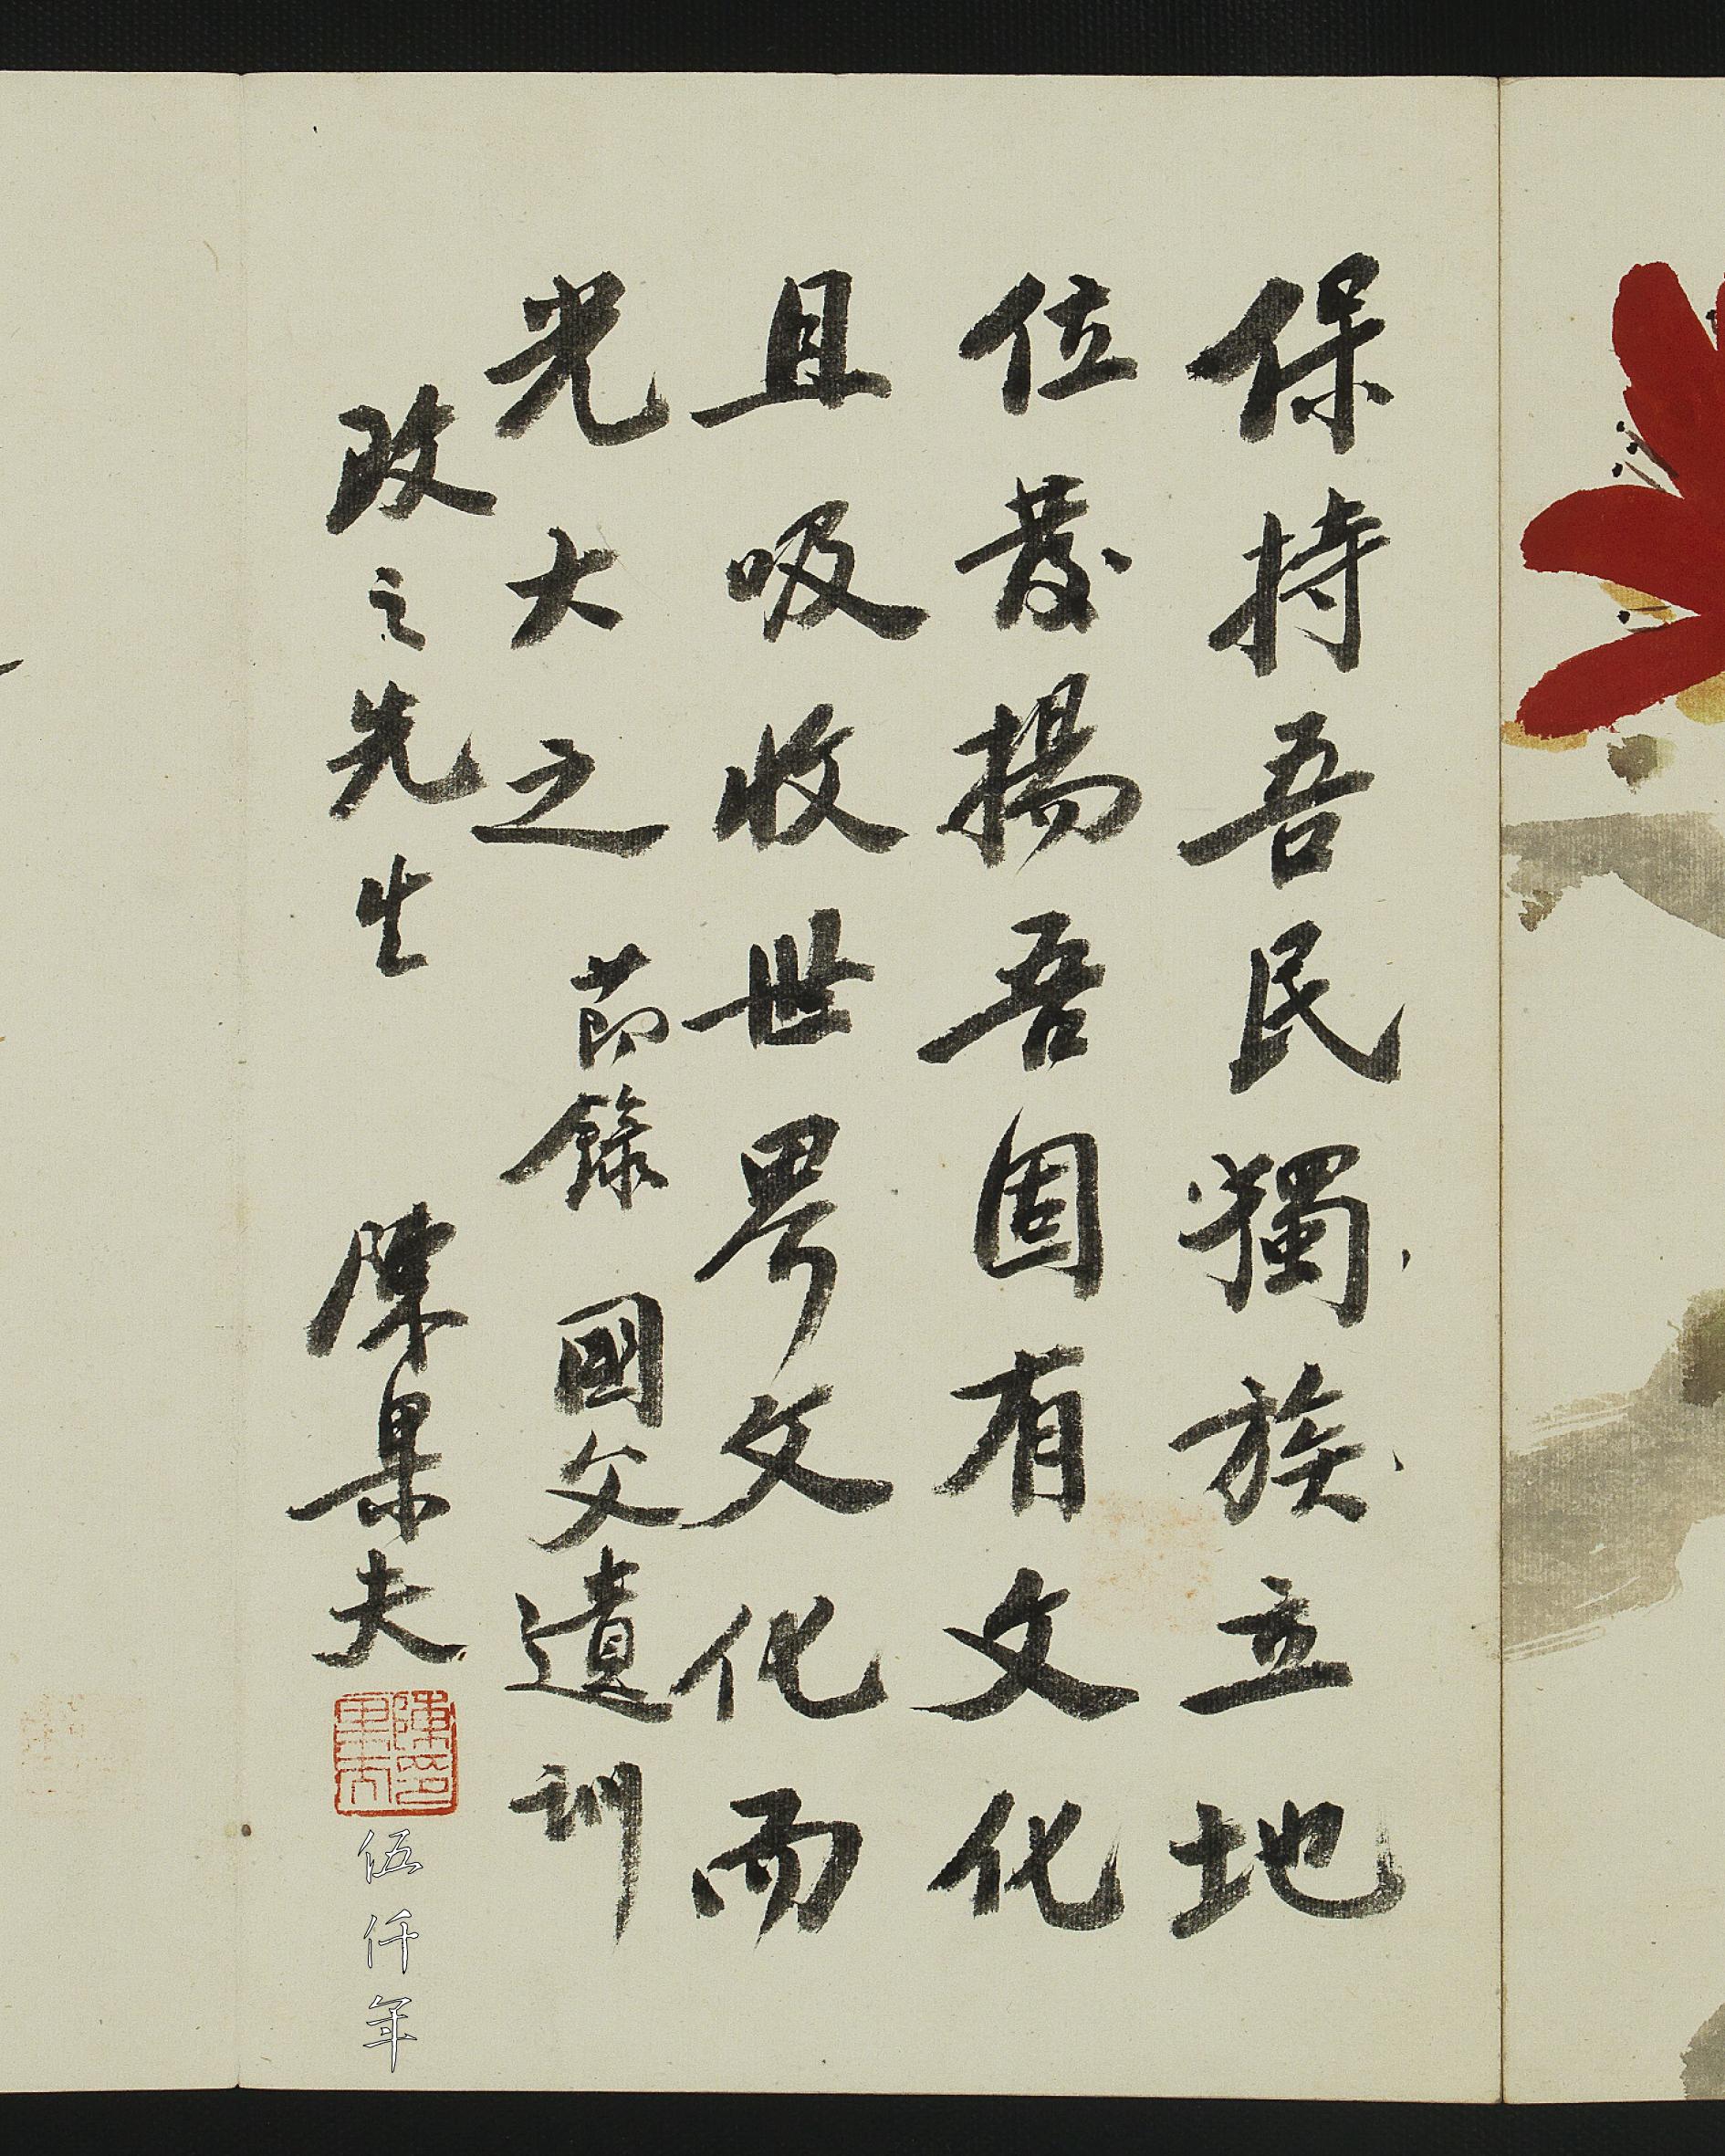 保持吾民獨族立地
位發揚吾固有文化
且吸收世界文化而
光大之 節錄 國父遺訓
政之先生 陳果夫
陳果夫印
伍仟年